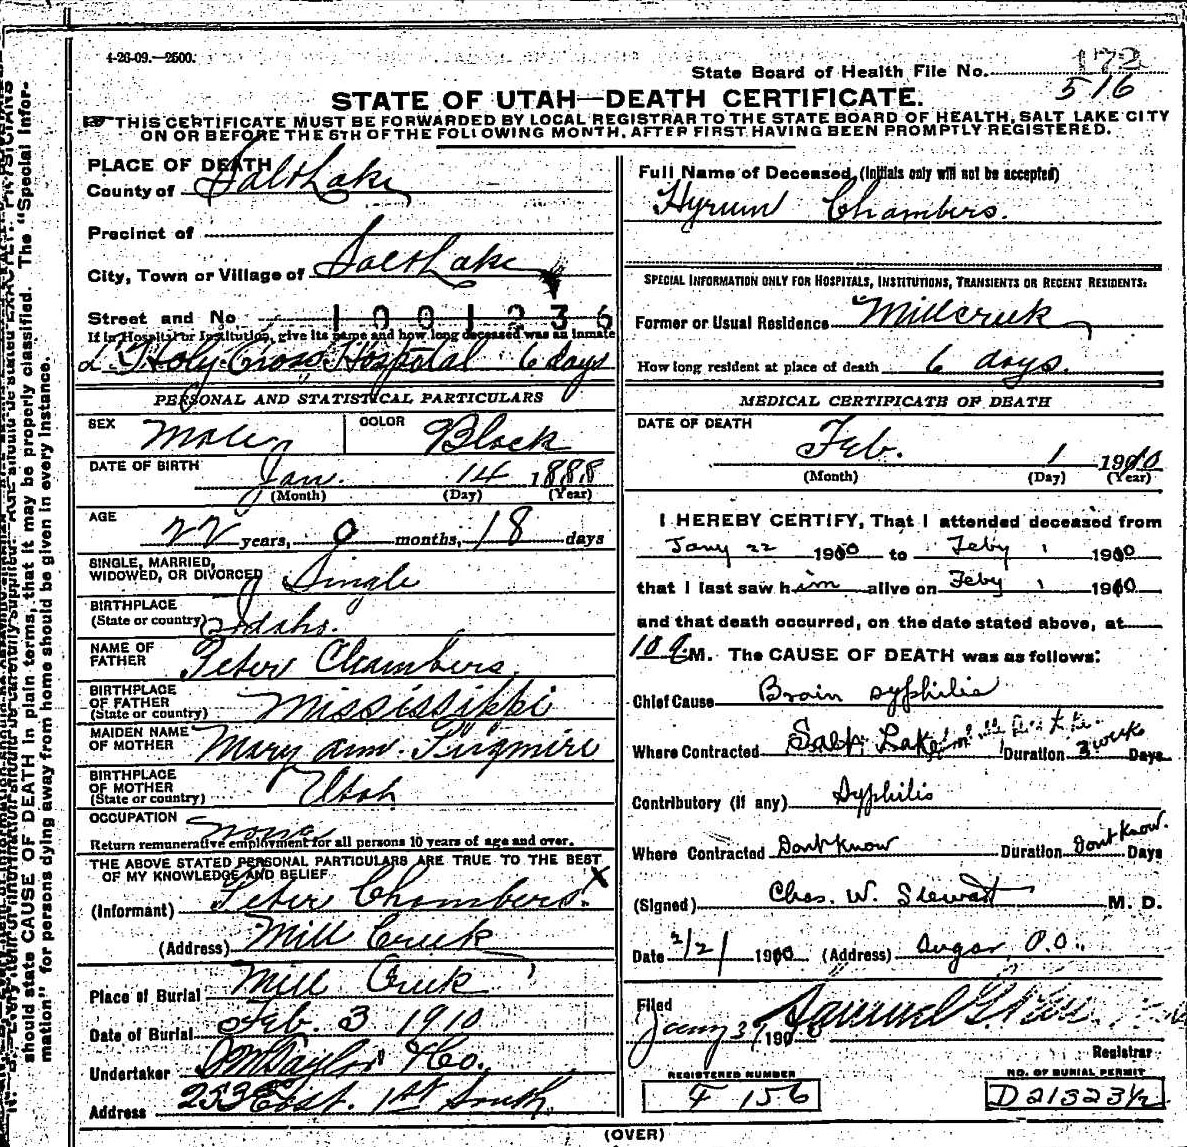 4-26-09.—2500.
State Board of Health File No. 172
516
STATE OF UTAH—DEATH CERTIFICATE.
THIS CERTIFICATE MUST BE FORWARDED BY LOCAL REGISTRAR TO THE STATE BOARD OF HEALTH, SALT LAKE CITY
ON OR BEFORE THE 5TH OF THE FOLLOWING MONTH, AFTER FIRST HAVING BEEN PROMPTLY REGISTERED.
PLACE OF DEATH
County of Salt Lake
Precinct of
City, Town or Village of Salt Lake
Street and No 1001236
If in Hospital or Institution, give its name and how long deceased was an inmate
Holy Cross Hospital 6 days
PERSONAL AND STATISTICAL PARTICULARS
SEX Male COLOR Black
DATE OF BIRTH Jan. 14 1888
(Month) (Day) (Year)
AGE 22 years, 0 months, 18 days
SINGLE, MARRIED,
WIDOWED, OR DIVORCED Single
BIRTHPLACE
(State or country) Idaho.
NAME OF
FATHER Peter Chambers
BIRTHPLACE
OF FATHER
(State or country) Mississippi
MAIDEN NAME
OF MOTHER Mary Ann
BIRTHPLACE
OF MOTHER
(State or country) Utah
OCCUPATION None
Return remunerative employment for all persons 10 years of age and over.
THE ABOVE STATED PERSONAL PARTICULARS ARE TRUE TO THE BEST
OF MY KNOWLEDGE AND BELIEF X
(Informant) Peter Chambers.
(Address) Mill Creek
Place of Burial Mill Creek
Date of Burial Feb. 3 1910
Undertaker Taylor & Co.,
Address 253 East. 1st South
Full Name of Deceased, (Initials only will not be accepted)
Hyrum Chambers.
SPECIAL INFORMATION ONLY FOR HOSPITALS, INSTITUTIONS, TRANSIENTS OR RECENT RESIDENTS:
Former or Usual Residence Millcreek
How long resident at place of death 6 days.
MEDICAL CERTIFICATE OF DEATH
DATE OF DEATH
Feb. 1 1910
(Month) (Day) (Year)
I HEREBY CERTIFY, That I attended deceased from
Jany 22 1910 to Feby 1 1910
that I last saw him alive on Feby 1 1910
and that death occurred, on the date stated above, at
10 a M. The CAUSE OF DEATH was as follows:
Chief Cause Brain syphilis
Where Contracted Salt Lake Duration 3 week Days
Contributory (if any) Syphilis
Where Contracted Dont know Duration Dont Know. Days
(Signed) Chas. W. Stewart M. D.
Date 2/2/ 1910 (Address) Sugar P.O.
Filed
Samuel G.
Registrar
REGISTERED NUMBER
F 156
NO. OF BURIAL PERMIT
D 21323½
(OVER)
should state CAUSE OF DEATH in plain terms, that it may be properly classified. The "Special Infor-
mation" for persons dying away from home should be given in every instance.